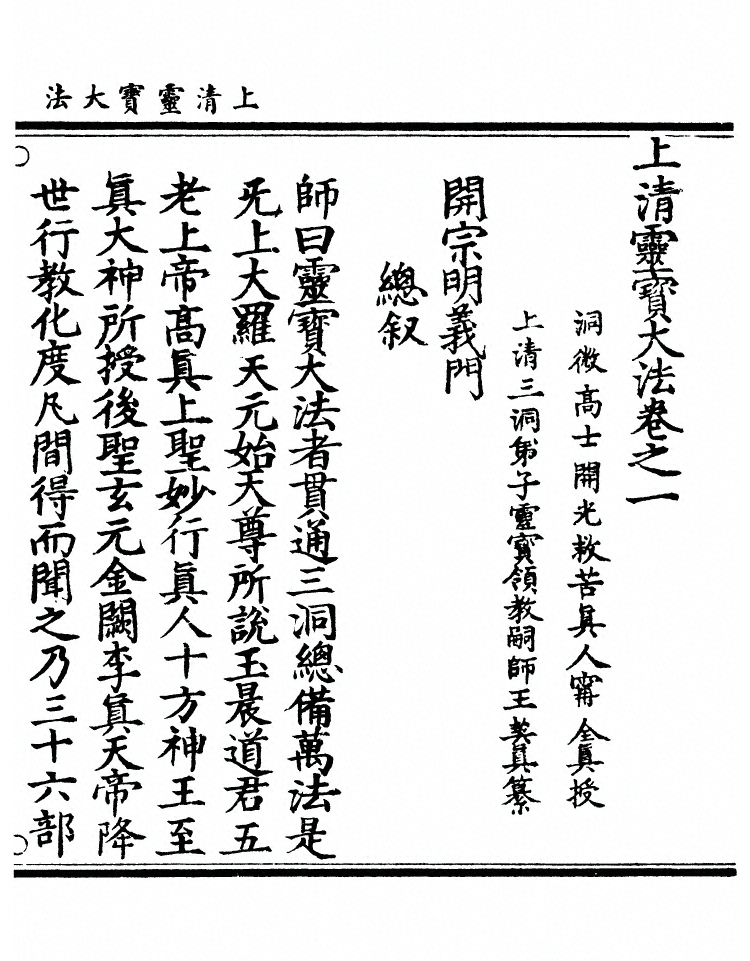 上清靈寶大法
上清靈寶大法卷之一
洞微高士開光救苦眞人甯全眞授
上清三洞弟子靈寶領教嗣師王契眞纂
開宗明義門
總叙
師曰靈寶大法者貫通三洞總備萬法是
旡上大羅天元始天尊所說玉晨道君五
老上帝高眞上聖妙行眞人十方神王至
眞大神所授後聖玄元金闕李眞天帝降
世行教化度凡間得而聞之乃三十六部